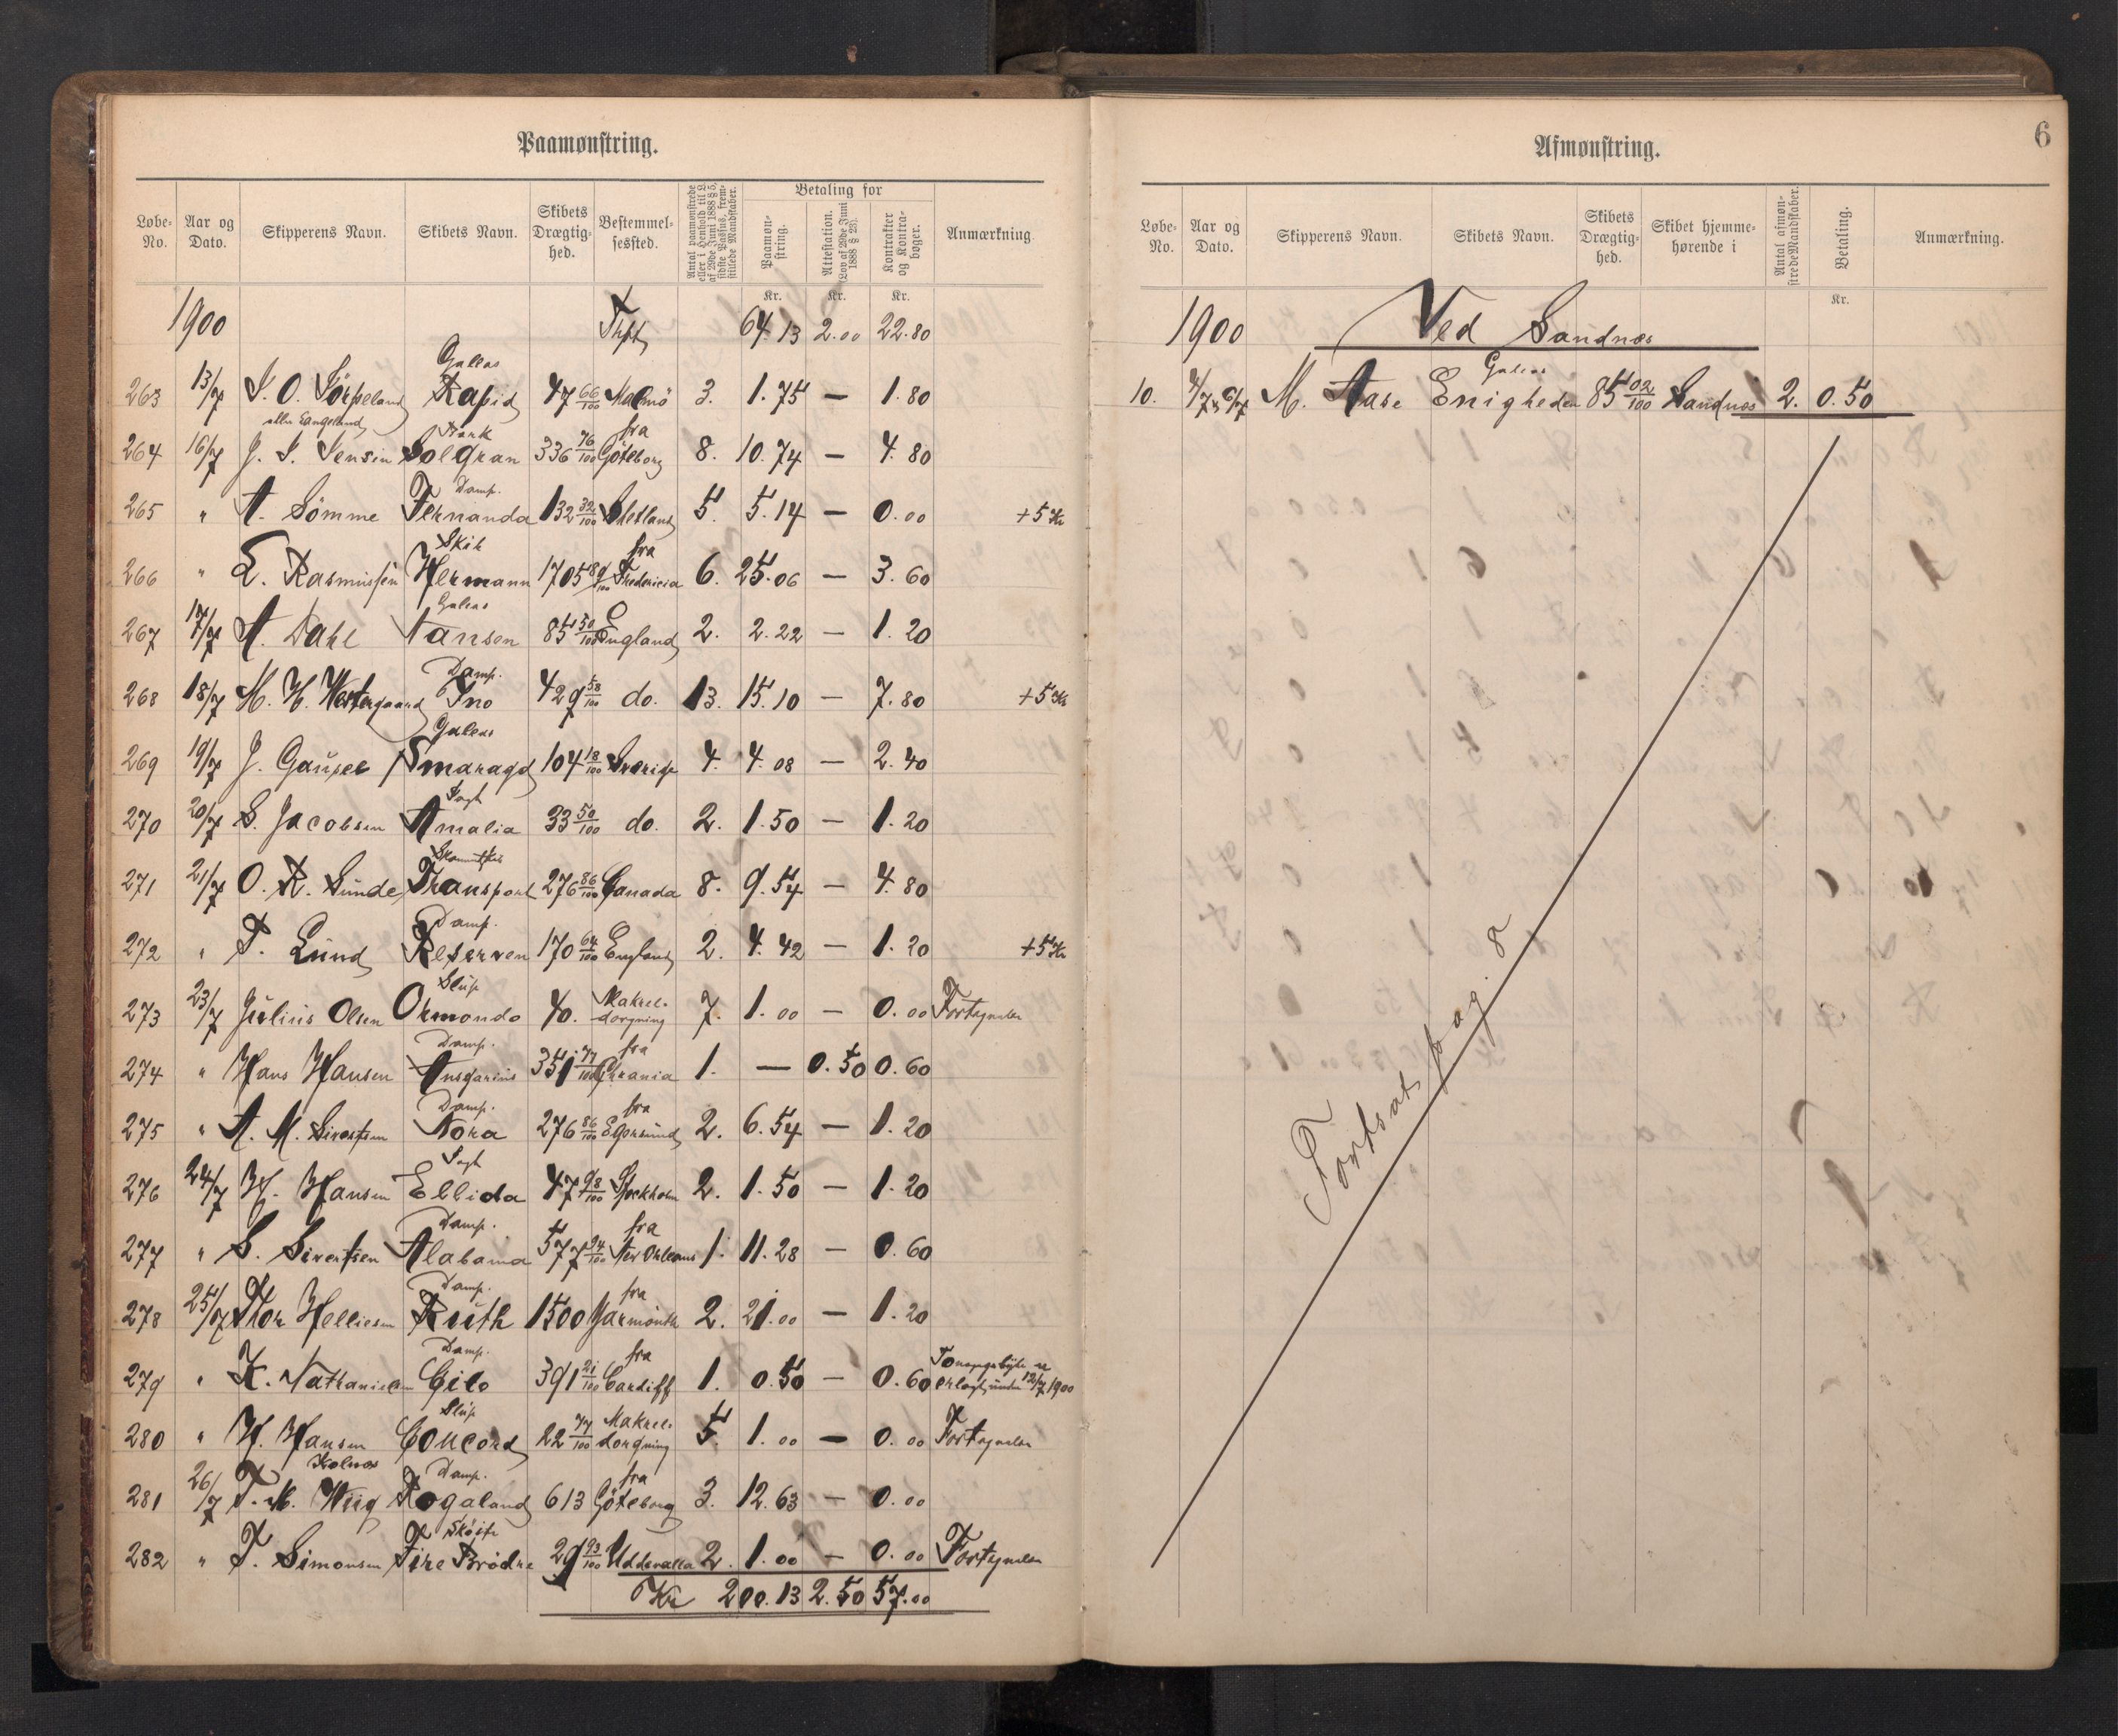 Paamønstring.
Løbe-No. Aar og Dato. Skipperens Navn. Skibets Navn. Skibets Drægtig-hed. Bestemmel-sessted. Antal paamønstrede eller i Henhold til L. af 29de Juni 1888 § 5, sidste Passus, frem-stillede Mandskaber. Betaling for Paamøn-string. Attestation. (Lov af 29de Juni 1888 § 23). Kontrakter og Kontra-bøger. Anmærkning
Kr. Kr. Kr.
1900 Trspt 64.13 2.00 22.80
Galeas
263 13/7 Rapid 47 66/100 Malmö 3. 1.75 — 1.80
eller Langeland Bark fra
264 16/7 J. S. Jensen Solgran 336 76/100 Göteborg 8. 10.74 — 4.80
Damp.
265 " A. Sömme Fernanda 132 32/100 Shetland 5. 5.14 — 0.00 + 5 Kr
Skib fra
266 " L. Rasmussen Hermann 1705 89/100 Fredericia 6. 25.06 — 3.60
Galeas
267 17/7 A. Dahl Nansen 85 50/100 England 2. 2.22 — 1.20
Damp.
268 18/7 M. H. Westergaard Ino 429 58/100 do. 13. 15.10 — 7.80 + 5 Kr
Galeas
269 19/7 J. Gausel Smaragd 104 18/100 Sverige 4. 4.08 — 2.40
Jagt
270 20/7 S. Jacobsen Amalia 33 50/100 do. 2. 1.50 — 1.20
271 21/7 O. R. Sunde Transport 276 86/100 Canada 8. 9.54 — 4.80
Damp.
272 " T. Lund Reserven 170 64/100 England 2. 4.42 — 1.20 + 5 Kr
Slup Makrel-
273 23/7 Julius Olsen Ormondo 40. dorgning 7. 1.00 — 0.00 Fortegnelse
Damp. fra
274 " Hans Hansen Ansgarius 351 77/100 Chrania 1. — 0.50 0.60
Damp. fra
275 " A. M. Sivertsen Nora 276 86/100 Egersund 2. 6.54 — 1.20
Jagt
276 24/7 H. Hansen Ellida 47 98/100 Stockholm 2. 1.50 — 1.20
Damp. fra
277 " S. Sivertsen Alabama 577 24/100 New Orleans 1. 11.28 — 0.60
Damp. fra
278 25/7 Thor Helliesen Ruth 1500 Yarmouth 2. 21.00 — 1.20
Damp. fra
279 " K. Nathanielsen Gilo 391 21/100 Cardiff 1. 0.50 — 0.60 erlagt under 12/7 1900
Slup Makrel-
280 " H. Hansen Concord 22 77/100 dorgning 5. 1.00 — 0.00 Fortegnelse
Kolnes Damp. fra
281 26/7 T. M. Wiig Rogaland 613 Göteborg 3. 12.63 — 0.00
Skøite
282 " T. Simonsen Fire Brødre 29 93/100 Uddevalla 2. 1.00 — 0.00 Fortegnelse
Kr 200.13 2.50 57.00
6
Afmønstring.
Løbe-No. Aar og Dato. Skipperens Navn. Skibets Navn. Skibets Drægtig-hed. Skibet hjemme-hørende i Antal afmøn-strede Mandskaber. Betaling. Anmærkning.
Kr.
1900 Ved Sandnæs
Galeas
10. M. Aase Enigheden 85 02/100 Sandnæs 2. 0.50
Fortsat pag. 8